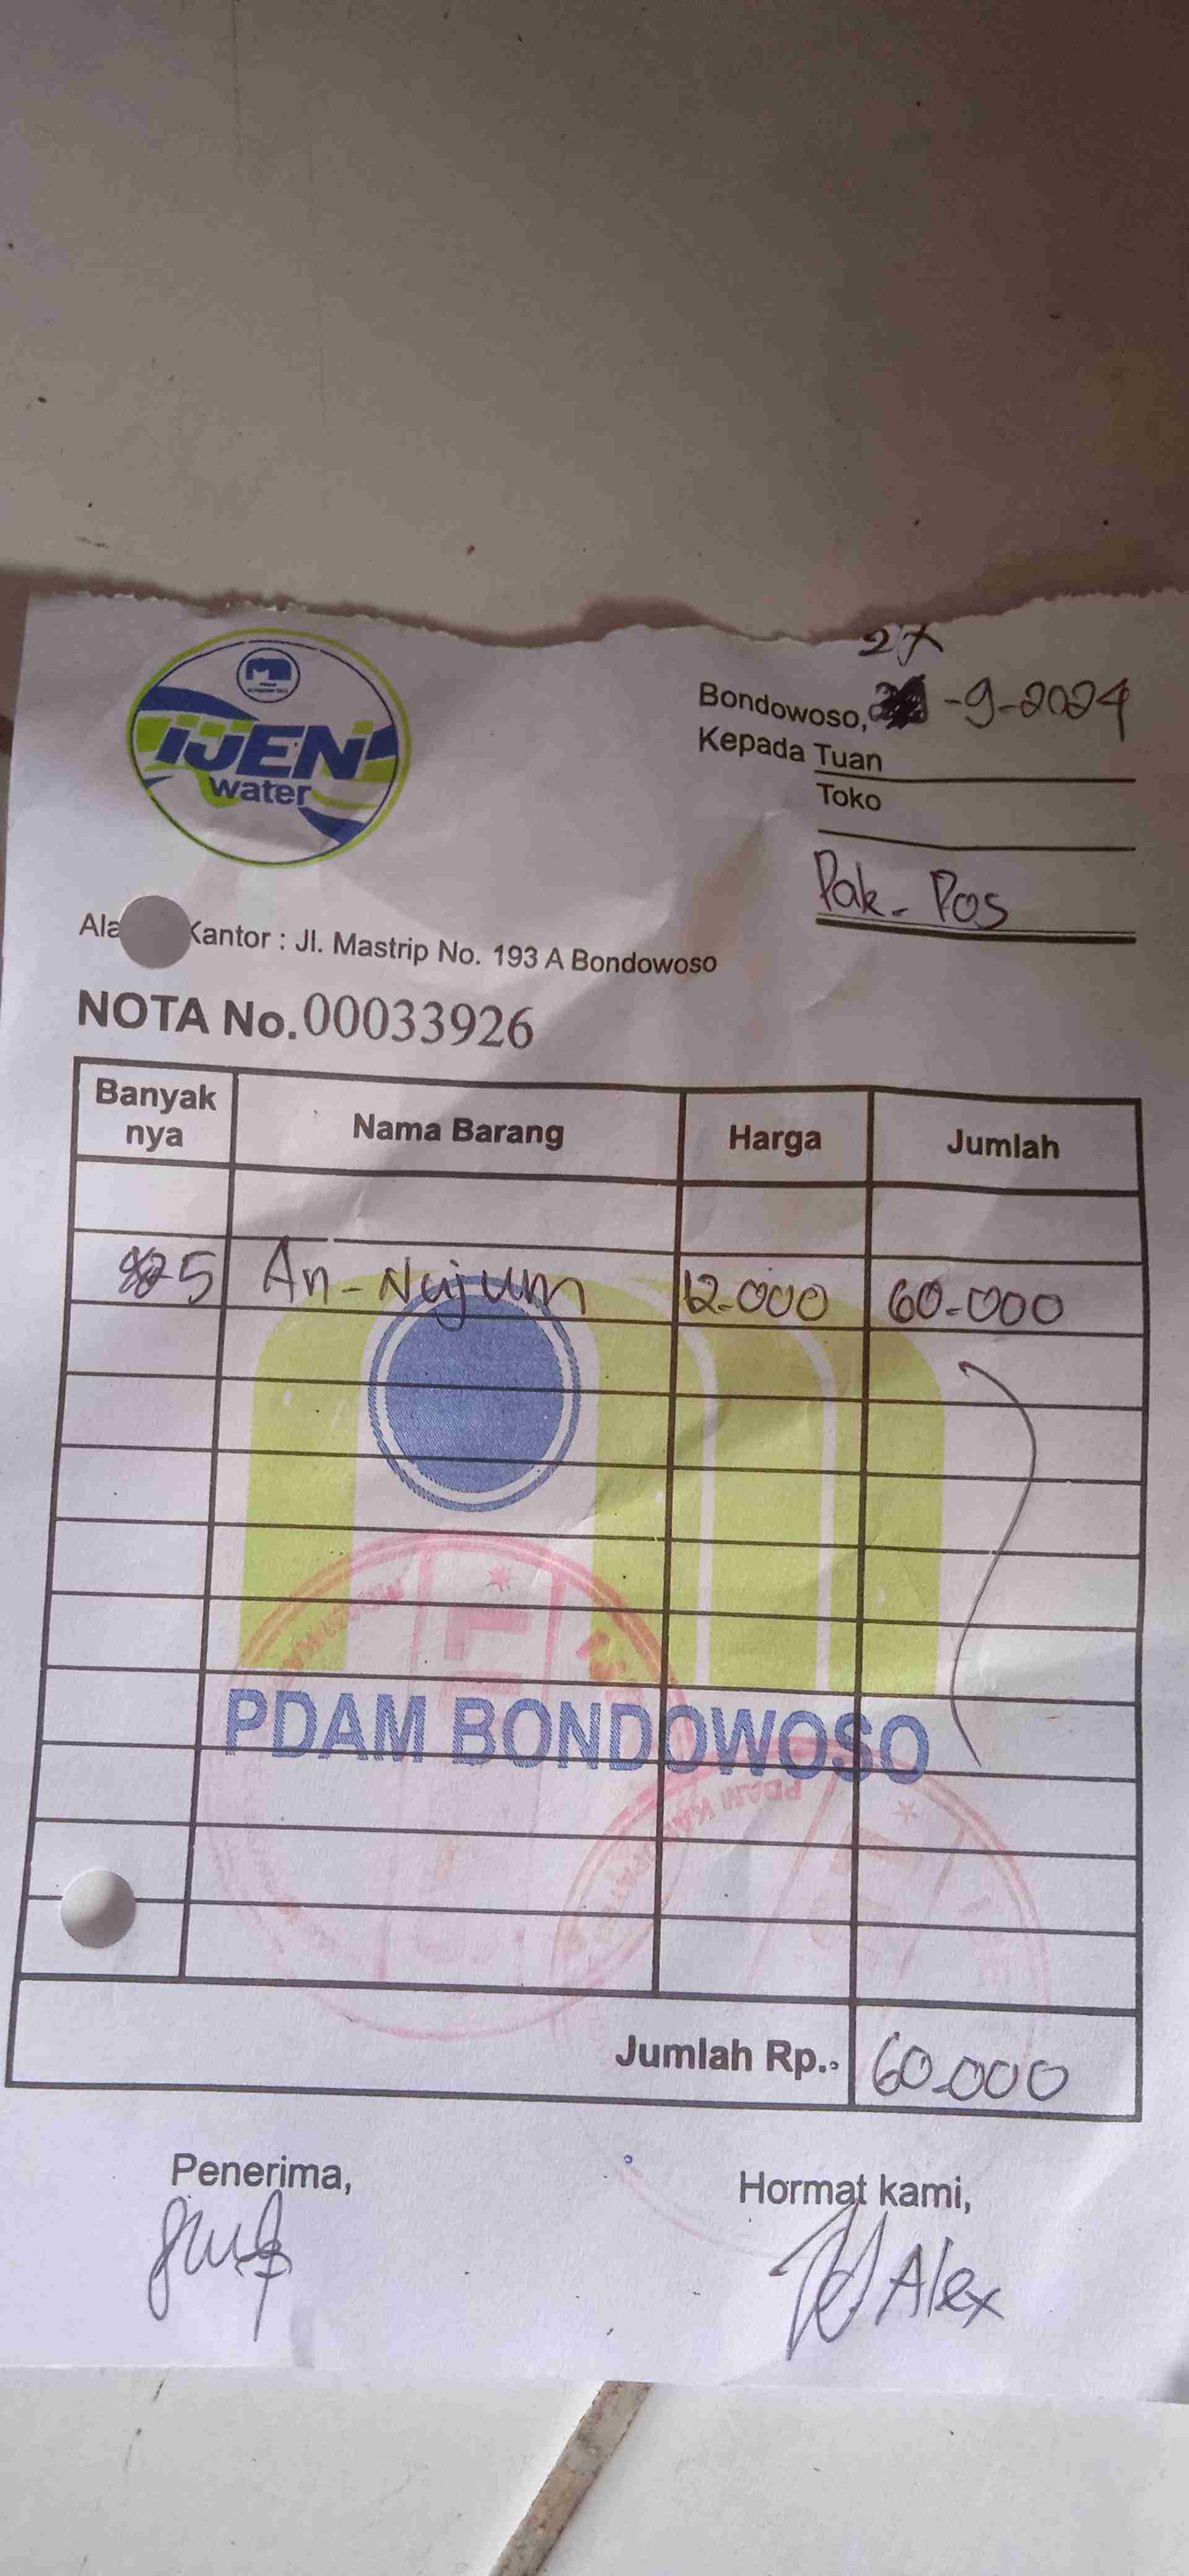 27
IJEN
water
Bondowoso, -9-2024
Kepada Tuan
Toko
Pak. Pos
Ala Kantor : Jl. Mastrip No. 193 A Bondowoso
NOTA No. 00033926
Banyak nya Nama Barang Harga Jumlah
5 An-Nujum 12.000 60.000
PDAM BONDOWOSO
Jumlah Rp.. 60.000
Penerima,
Hormat kami,
Alex